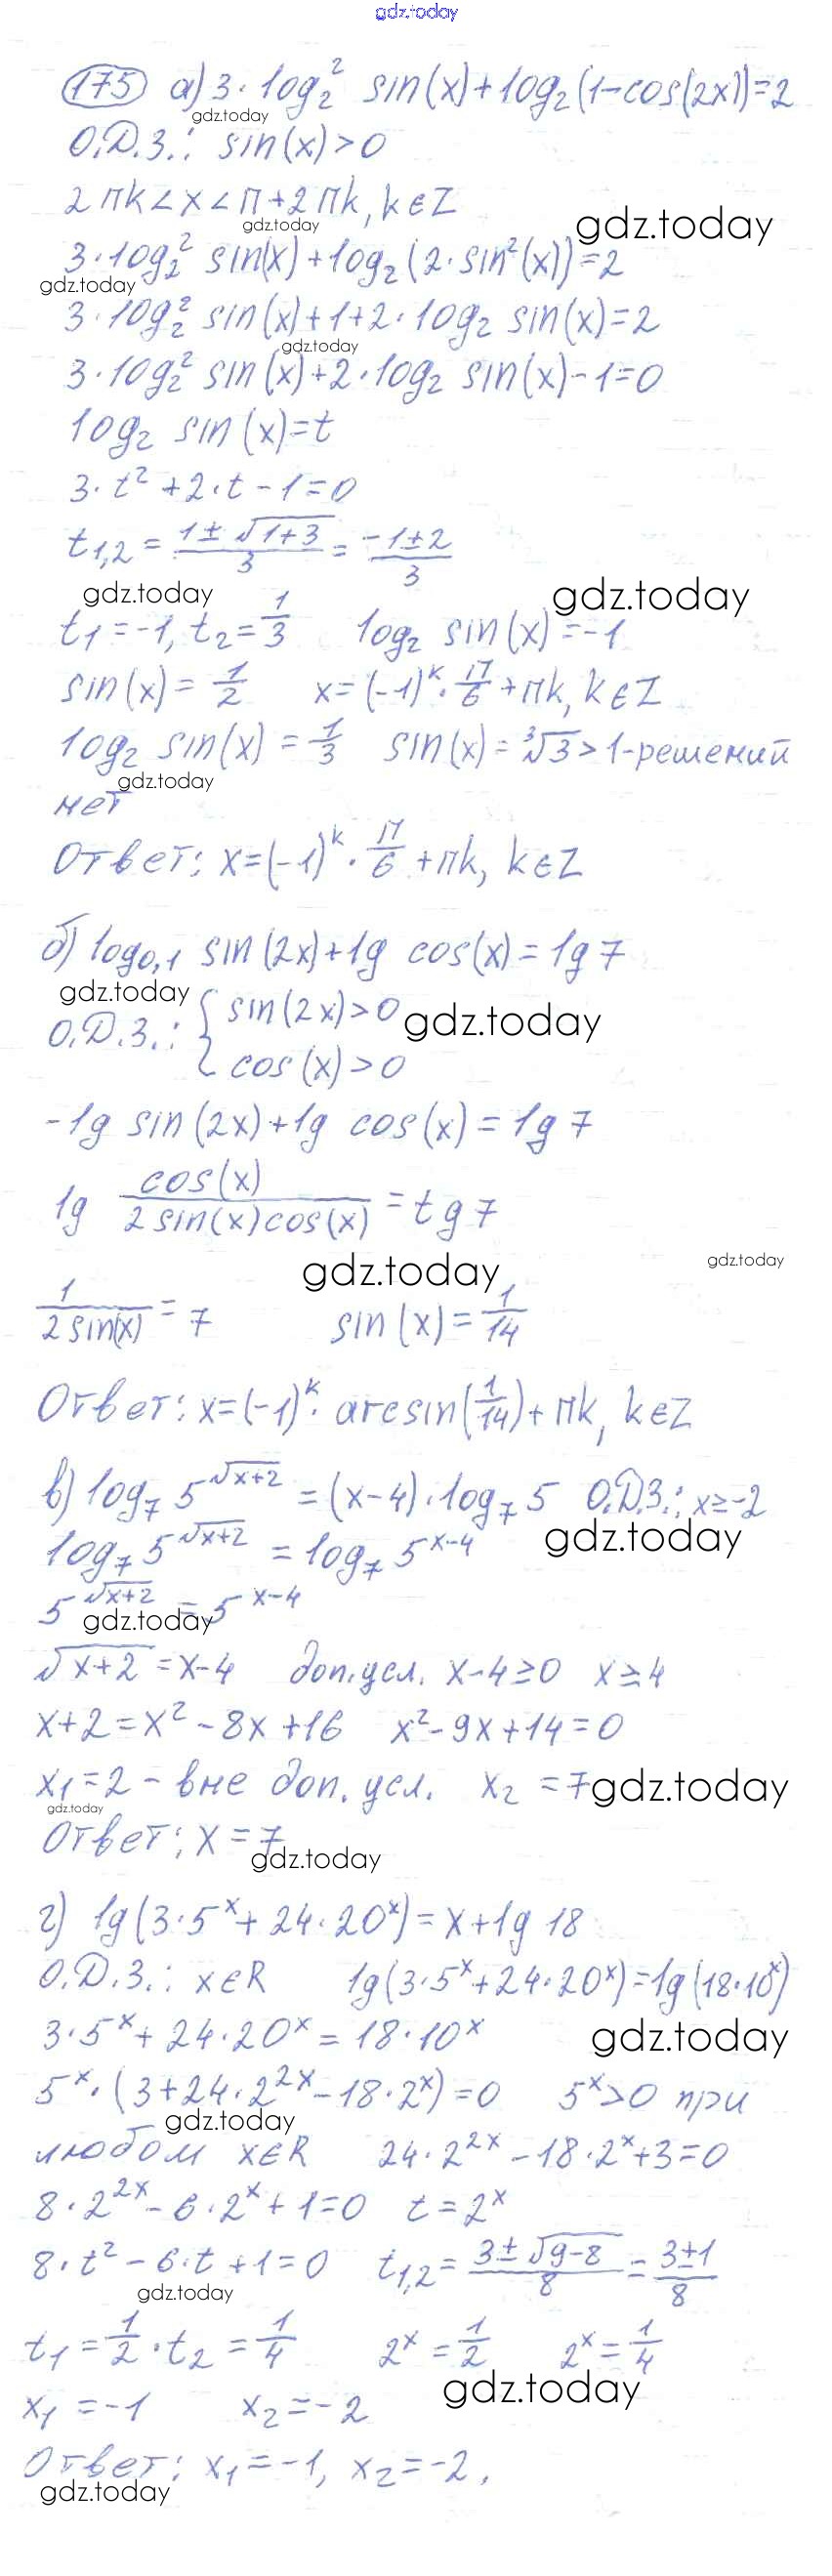 gdz.today
175 а) 3·log₂² sin(x)+log₂(1-cos(2x))=2
gdz.today
О.Д.З.: sin(x)>0
2πk<x<π+2πk, k∈Z
gdz.today
gdz.today
3·log₂² sin(x)+log₂(2·sin²(x))=2
gdz.today
3·log₂² sin(x)+1+2·log₂ sin(x)=2
gdz.today
3·log₂² sin(x)+2·log₂ sin(x)-1=0
log₂ sin(x)=t
3·t²+2·t-1=0
t₁,₂=(1±√(1+3))/3=(-1±2)/3
gdz.today
gdz.today
t₁=-1, t₂=1/3 log₂ sin(x)=-1
sin(x)=1/2 x=(-1)^k·π/6+πk, k∈Z
log₂ sin(x)=1/3 sin(x)=∛3>1-решений
gdz.today
нет
Ответ: x=(-1)^k·π/6+πk, k∈Z
б) log₀,₁ sin(2x)+lg cos(x)=lg7
gdz.today
О.Д.З.: { sin(2x)>0
gdz.today
cos(x)>0
-lg sin(2x)+lg cos(x)=lg7
lg cos(x)/(2sin(x)cos(x))=tg7
gdz.today
gdz.today
1/(2sin(x))=7 sin(x)=1/14
Ответ: x=(-1)^k·arcsin(1/14)+πk, k∈Z
в) log₇5^√(x+2)=(x-4)·log₇5 О.Д.З.: x≥-2
gdz.today
log₇5^√(x+2)=log₇5^(x-4)
5^√(x+2)=5^(x-4)
gdz.today
√(x+2)=x-4 доп.усл. x-4≥0 x≥4
x+2=x²-8x+16 x²-9x+14=0
x₁=2-вне доп.усл. x₂=7
gdz.today
gdz.today
Ответ: x=7
gdz.today
г) lg(3·5^x+24·20^x)=x+lg18
О.Д.З.: x∈R lg(3·5^x+24·20^x)=lg(18·10^x)
3·5^x+24·20^x=18·10^x
gdz.today
5^x·(3+24·2^2x-18·2^x)=0 5^x>0 при
gdz.today
любом x∈R 24·2^2x-18·2^x+3=0
8·2^2x-6·2^x+1=0 t=2^x
8·t²-6·t+1=0 t₁,₂=(3±√(9-8))/8=(3±1)/8
gdz.today
t₁=1/2·t₂=1/4 2^x=1/2 2^x=1/4
gdz.today
x₁=-1 x₂=-2
Ответ: x₁=-1, x₂=-2.
gdz.today